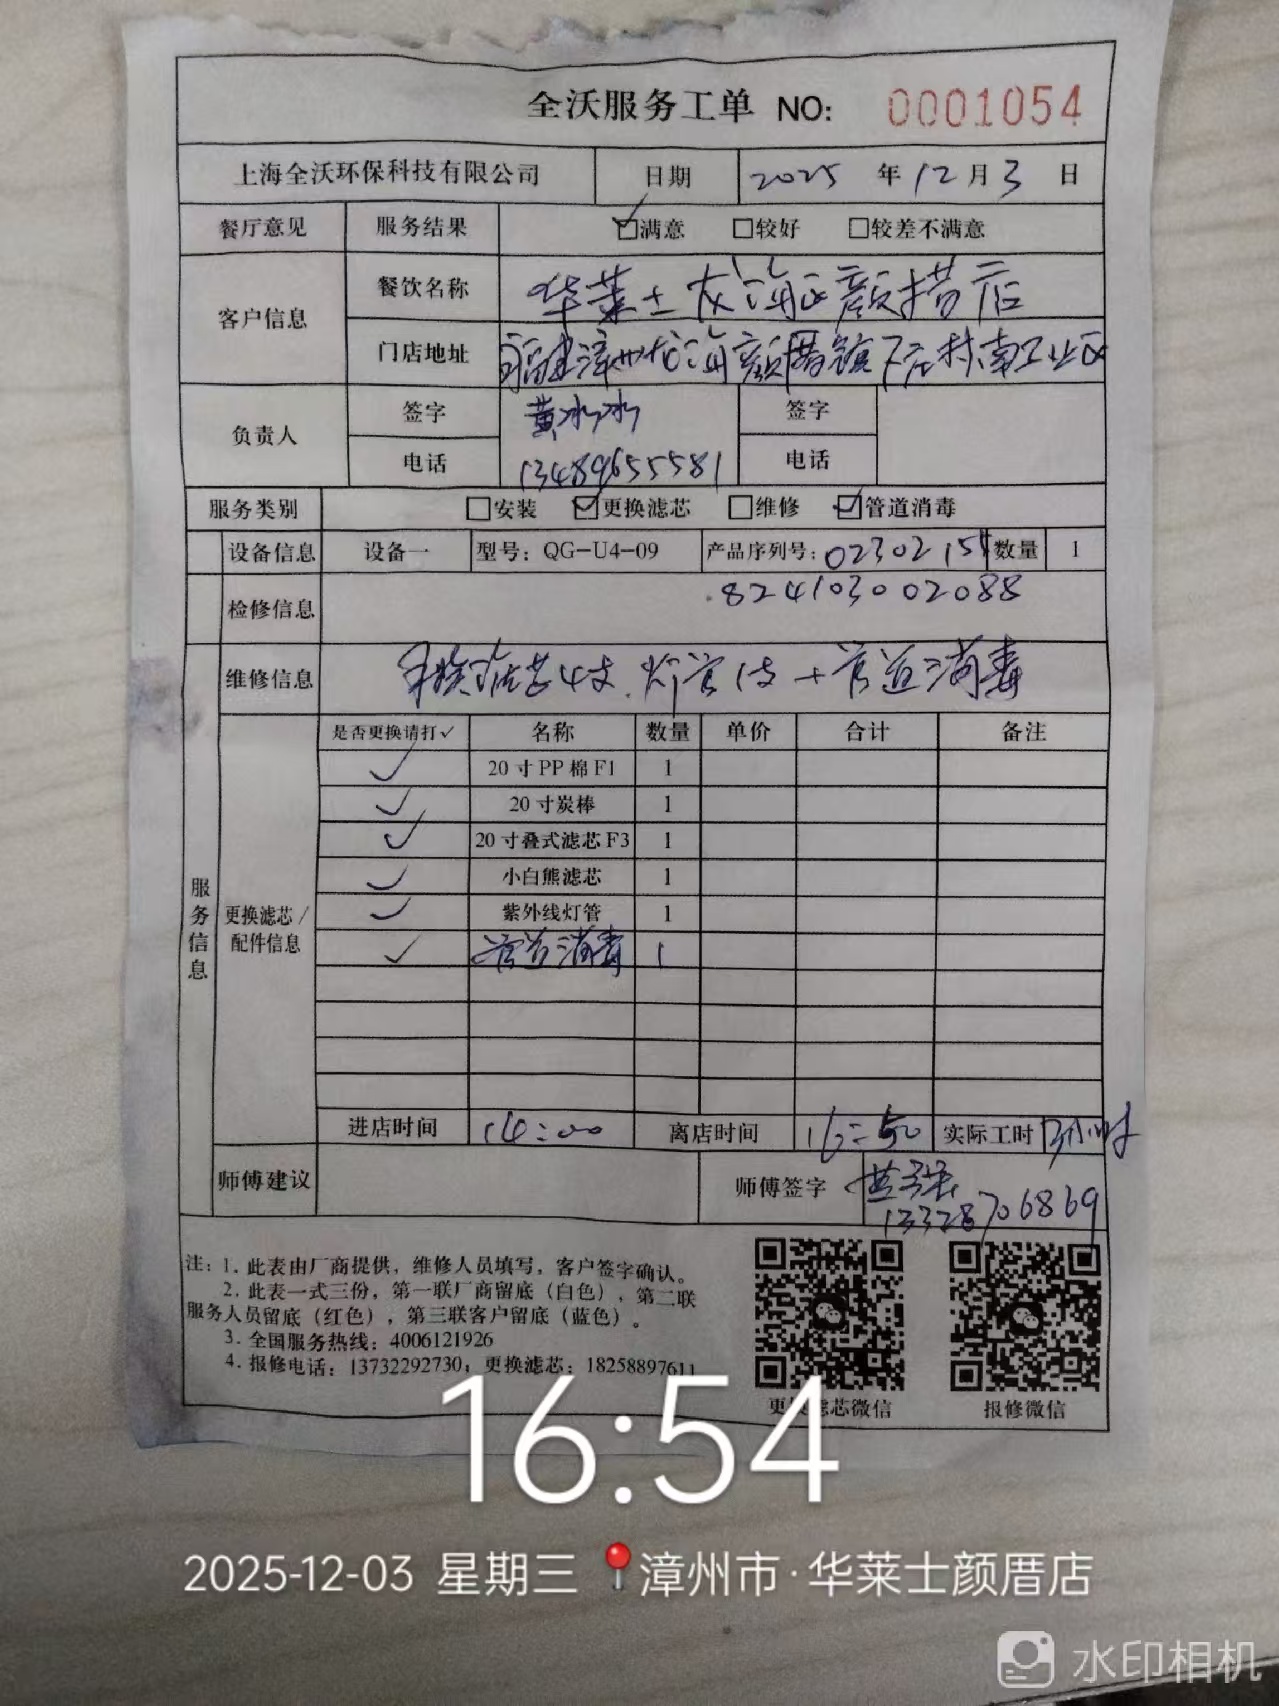 全沃服务工单 NO: 0001054
上海全沃环保科技有限公司 日期 2025 年 12 月 3 日
餐厅意见 服务结果 ☑满意 □较好 □较差不满意
客户信息 餐饮名称 华莱士龙海区颜措店
门店地址 福建漳州龙海颜厝镇下庄村南工业区
负责人 签字 黄冰冰 签字
电话 13489655581 电话
服务类别 □安装 ☑更换滤芯 □维修 ☑管道消毒
设备信息 设备一 型号：QG-U4-09 产品序列号：02302155 数量 1
检修信息 824103002088
维修信息 更换滤芯4支.灯管1支+管道消毒
服务信息
更换滤芯/配件信息
是否更换请打✓ 名称 数量 单价 合计 备注
✓ 20寸PP棉F1 1
✓ 20寸炭棒 1
✓ 20寸叠式滤芯F3 1
✓ 小白熊滤芯 1
✓ 紫外线灯管 1
✓ 管道消毒 1
进店时间 14:00 离店时间 16:50 实际工时 3小时
师傅建议 师傅签字
13328706869
注：1. 此表由厂商提供，维修人员填写，客户签字确认。
2. 此表一式三份，第一联厂商留底（白色），第二联
服务人员留底（红色），第三联客户留底（蓝色）。
3. 全国服务热线：4006121926
4. 报修电话：13732292730；更换滤芯：18258897611
更换滤芯微信 报修微信
16:54
2025-12-03 星期三 漳州市·华莱士颜厝店
水印相机